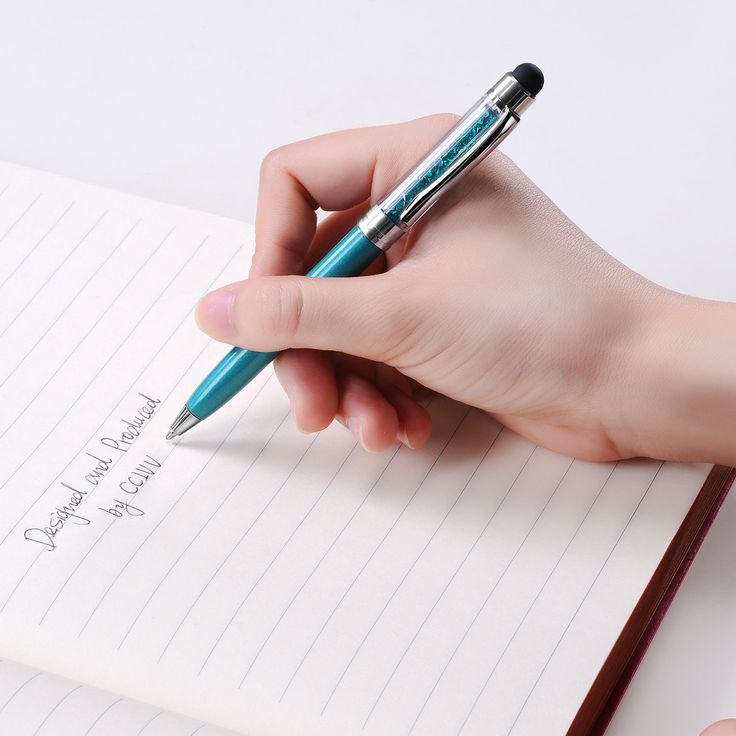 Designed and Produced
by CCIVV